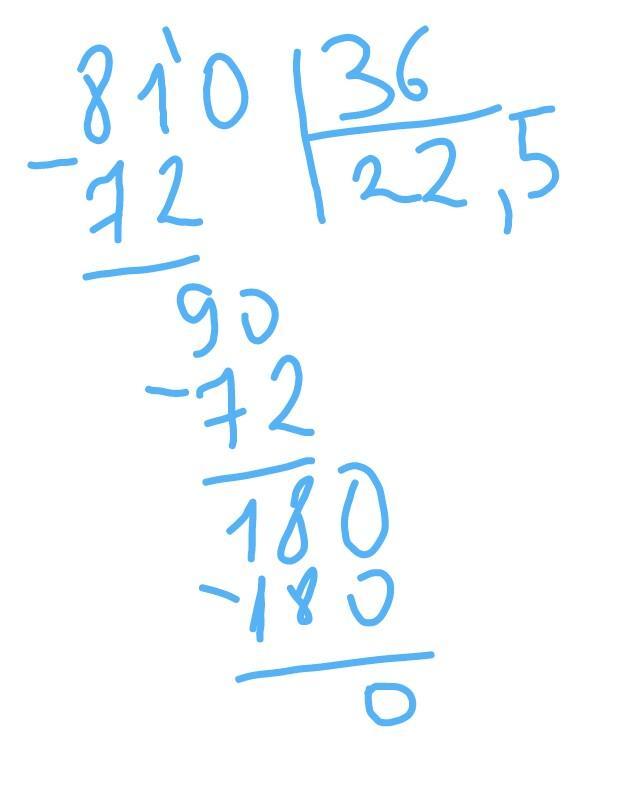 810 36
-72 22,5
90
-72
180
-180
0